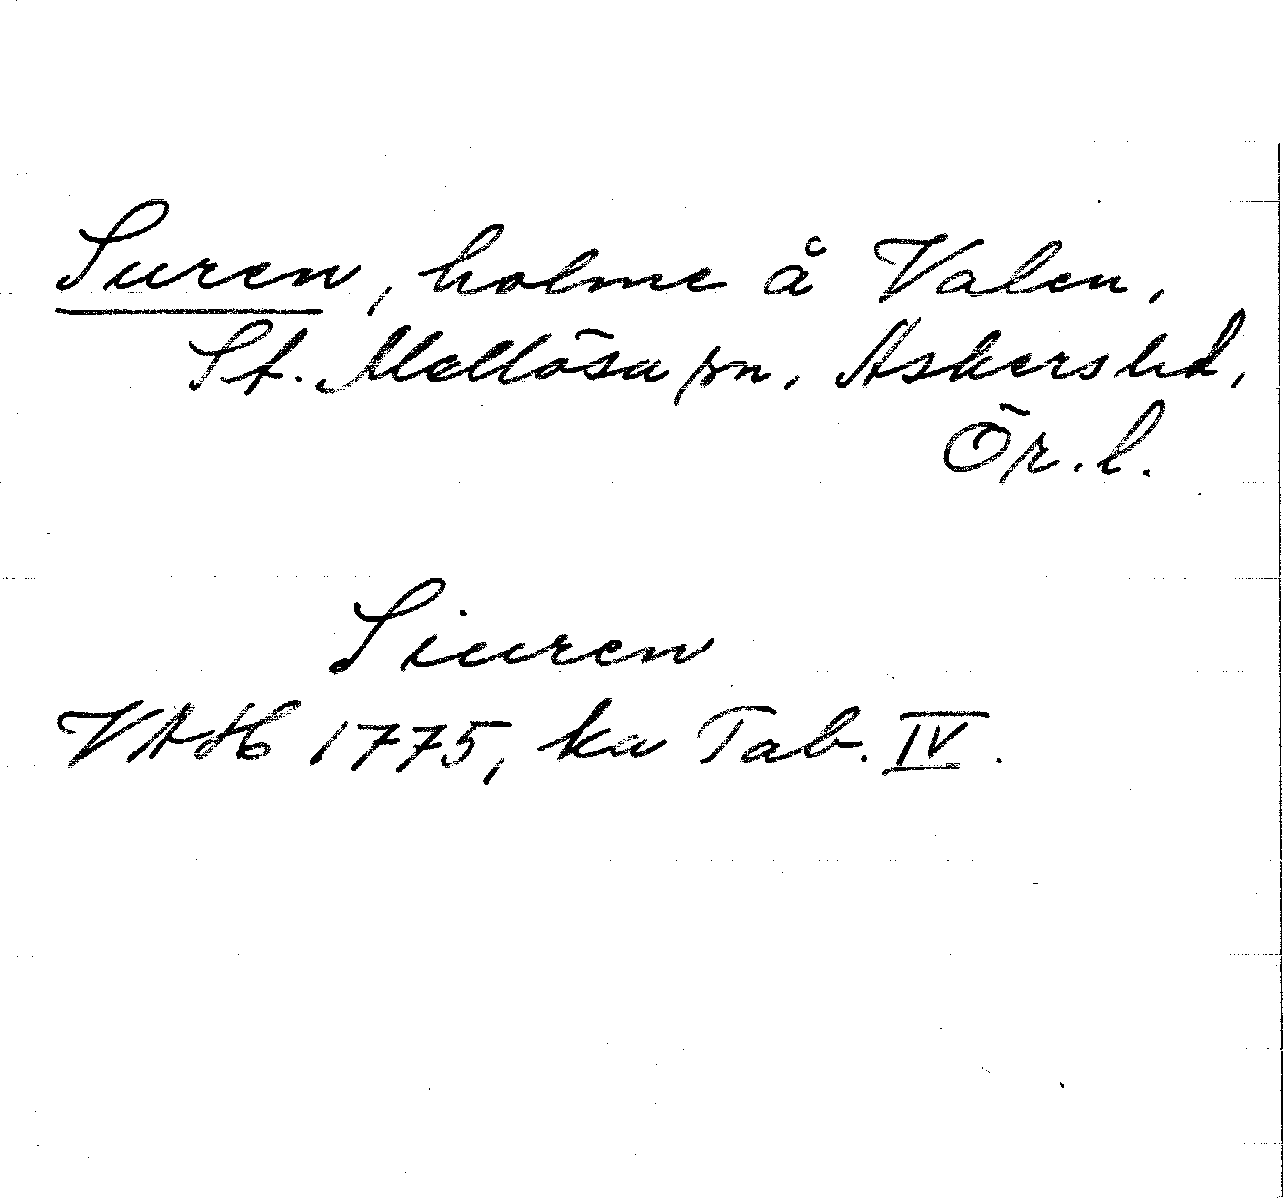 Suren, holme å Valen,
St. Mellösa sn, Askers hd,
Ör. l.
Siuren
VAH 1775, ka Tab. IV.